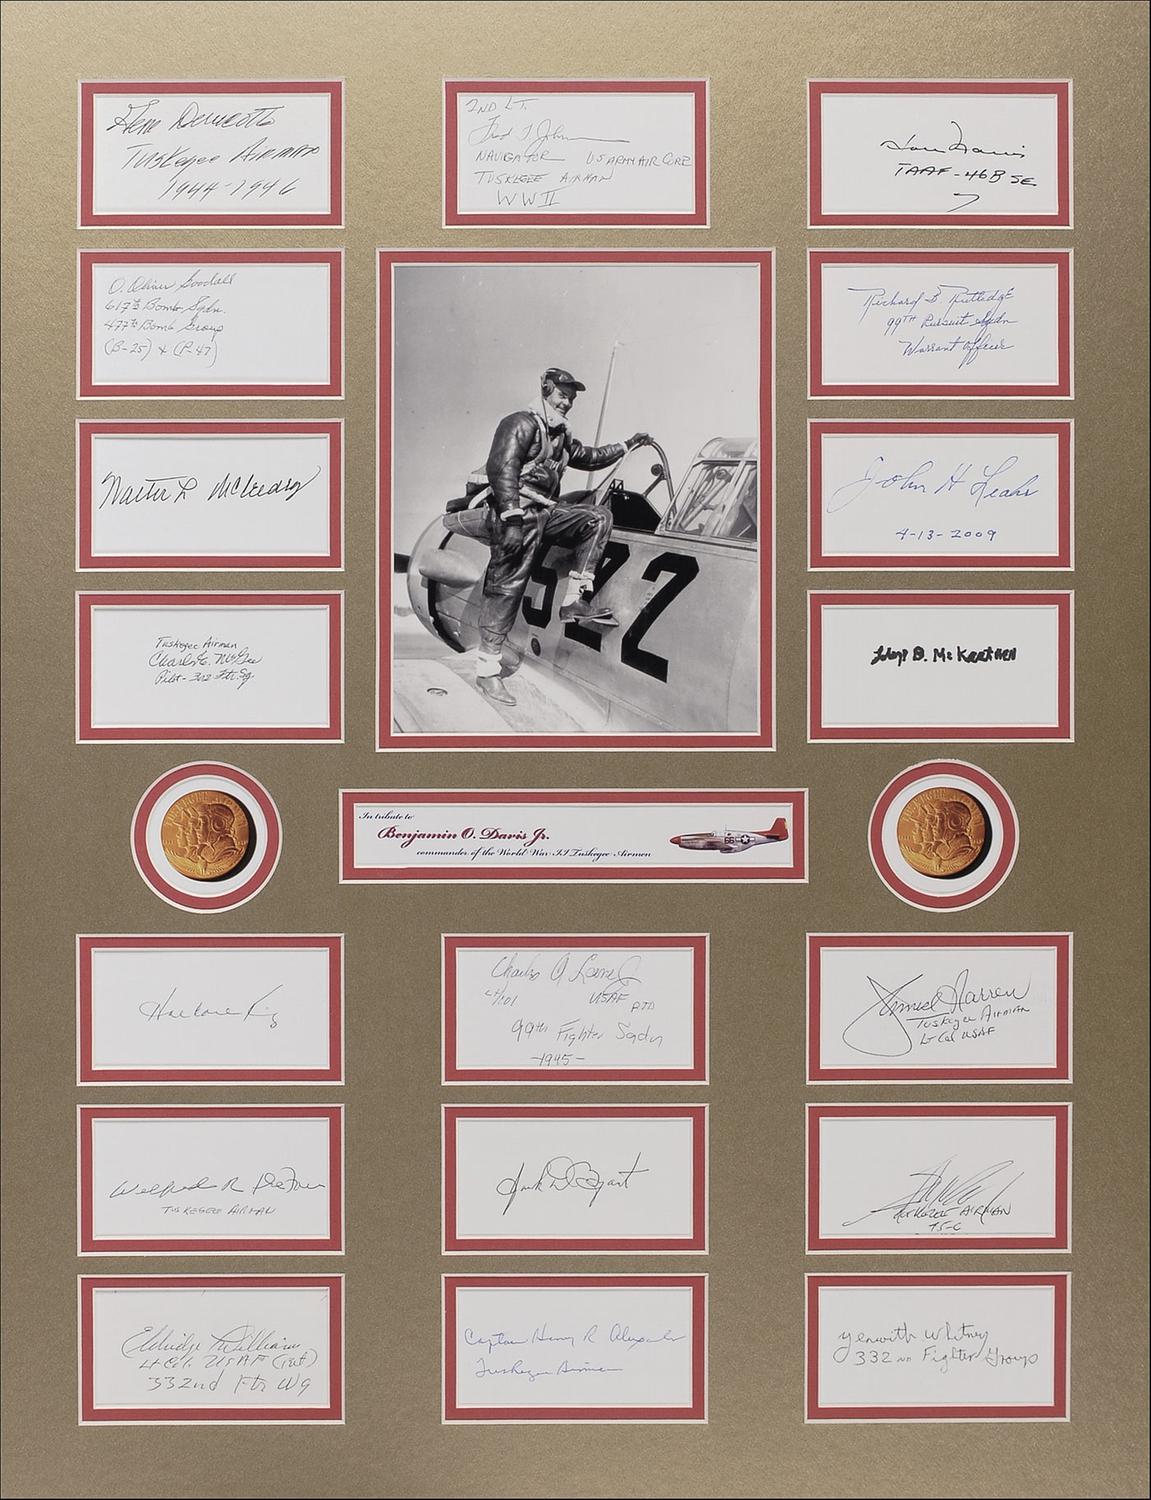 Gene Derricotte
Tuskegee Airman
1944-1946
2ND LT.
Fred J. Johnson
NAVIGATOR US ARMY AIR CORE
TUSKEGEE AIRMAN
WW II
Harris
TAAF-46B SE
O. Oliver Goodall
617th Bomb Sqdn.
477th Bomb Group
(B-25) & (P-47)
Richard B. Rutledge
99TH Pursuit Sqdn
Warrant Officer
Walter L McCreary
John H Leahr
4-13-2009
Tuskegee Airman
Charles E. McGee
Pilot-302 Ftr. Sq.
D. McKeethen
522
In tribute to
Benjamin O. Davis Jr.
commander of the World War II Tuskegee Airmen
66
Haldane King
Charles A Lane Jr
Lt/Col USAF RTD
99th Fighter Sqdn
-1945-
James Warren
Tuskegee Airman
Lt Col USAF
Wilfred R DeFour
TUSKEGEE AIRMAN
Jack D Bryant
TUSKEGEE AIRMAN
45-C
Eldridge Williams
Lt Col. USAF (ret)
332nd Ftr Wg
Captain Henry R Alexander
Tuskegee Airman
Yenwith Whitney
332ND Fighter Group